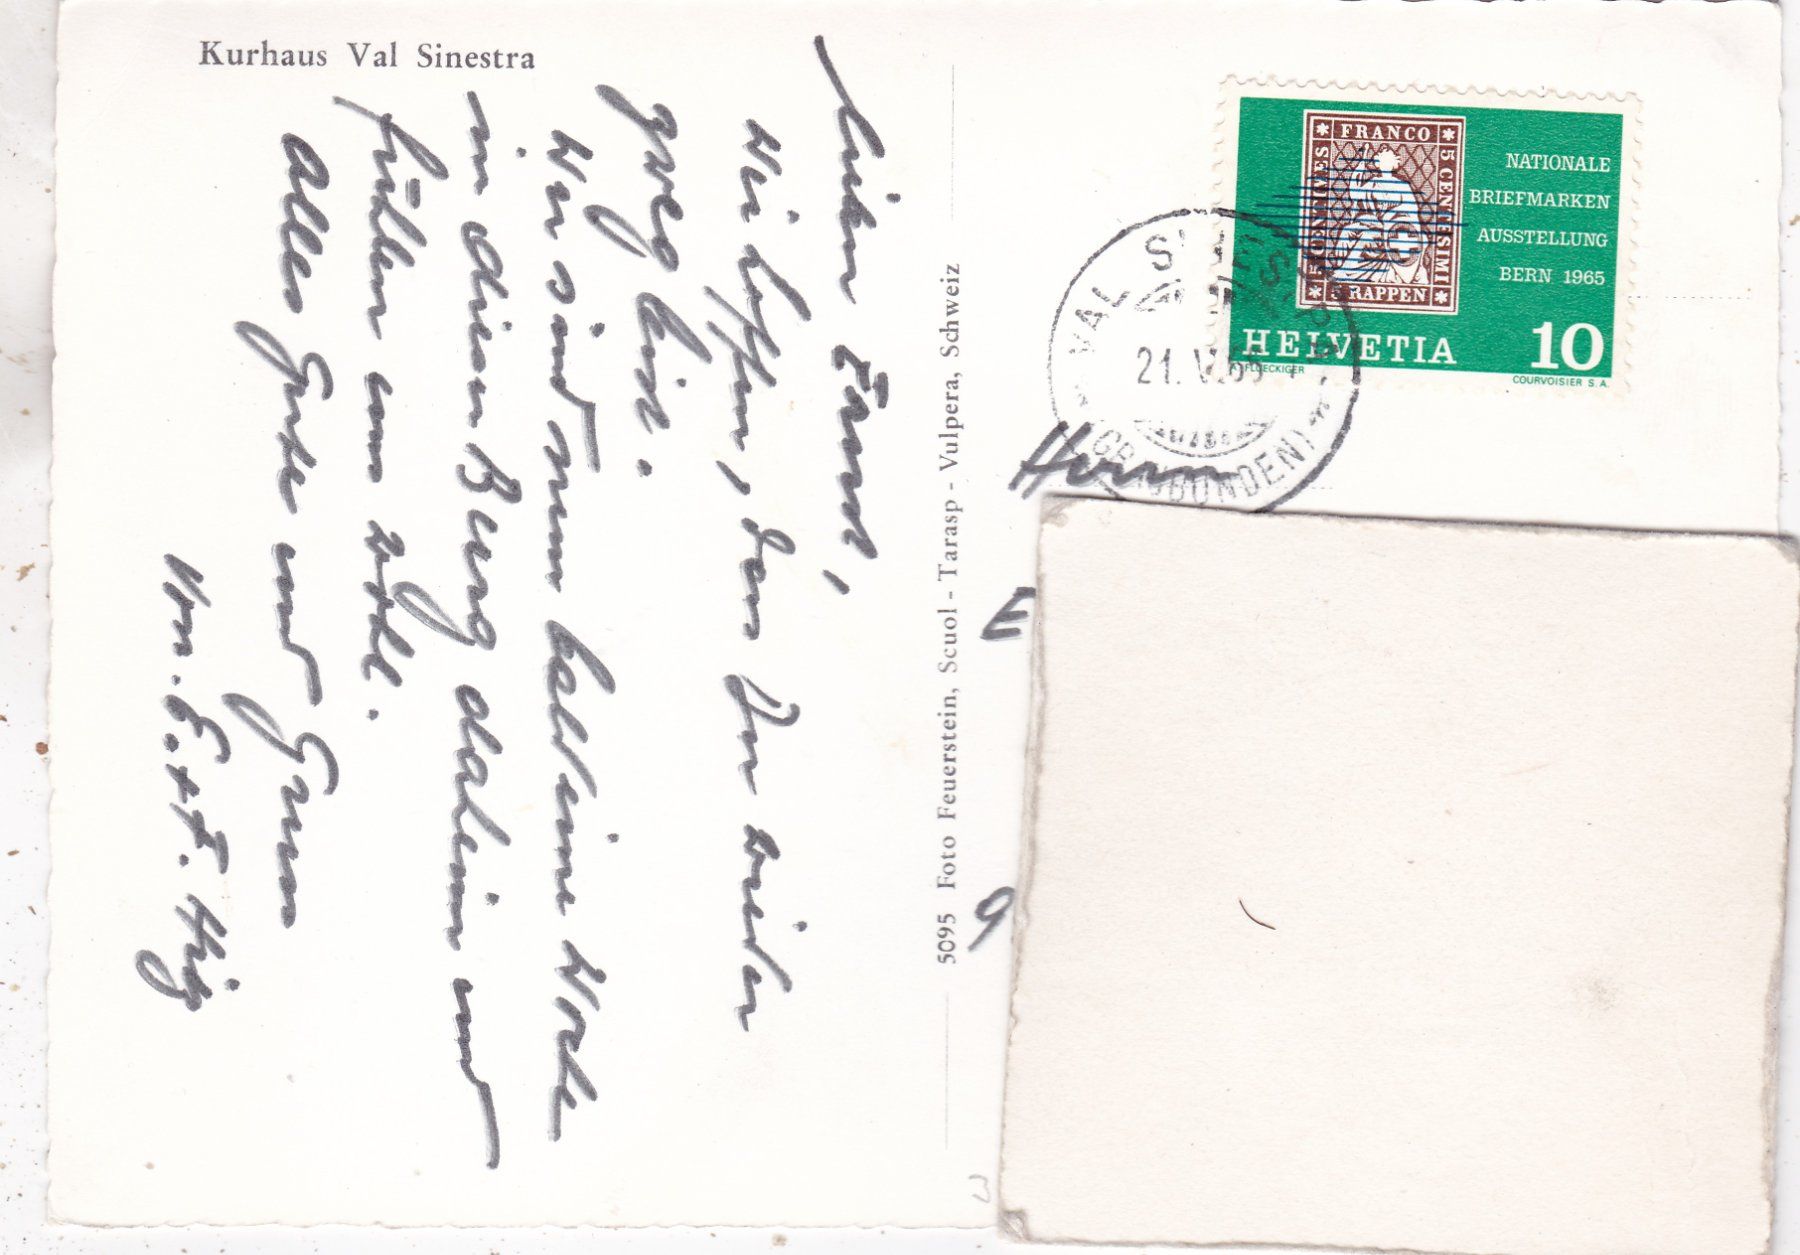 Kurhaus Val Sinestra
Lieber Ernst,
Wir hoffen, dass Du wieder
zweg bist.
Wir sind nun bald eine Woche
in diesen Berg daheim und
fühlen uns wohl.
Alles Gute und Gruss
Von E. + F.
5095 Foto Feuerstein, Scuol - Tarasp - Vulpera, Schweiz
FRANCO
5 CENTIMES
5 CENTESIMI
5 RAPPEN
NATIONALE
BRIEFMARKEN
AUSSTELLUNG
BERN 1965
HELVETIA 10
FLUECKIGER
COURVOISIER S.A.
VAL SINESTRA
21. V
(GRAUBÜNDEN)
Herrn
E
9